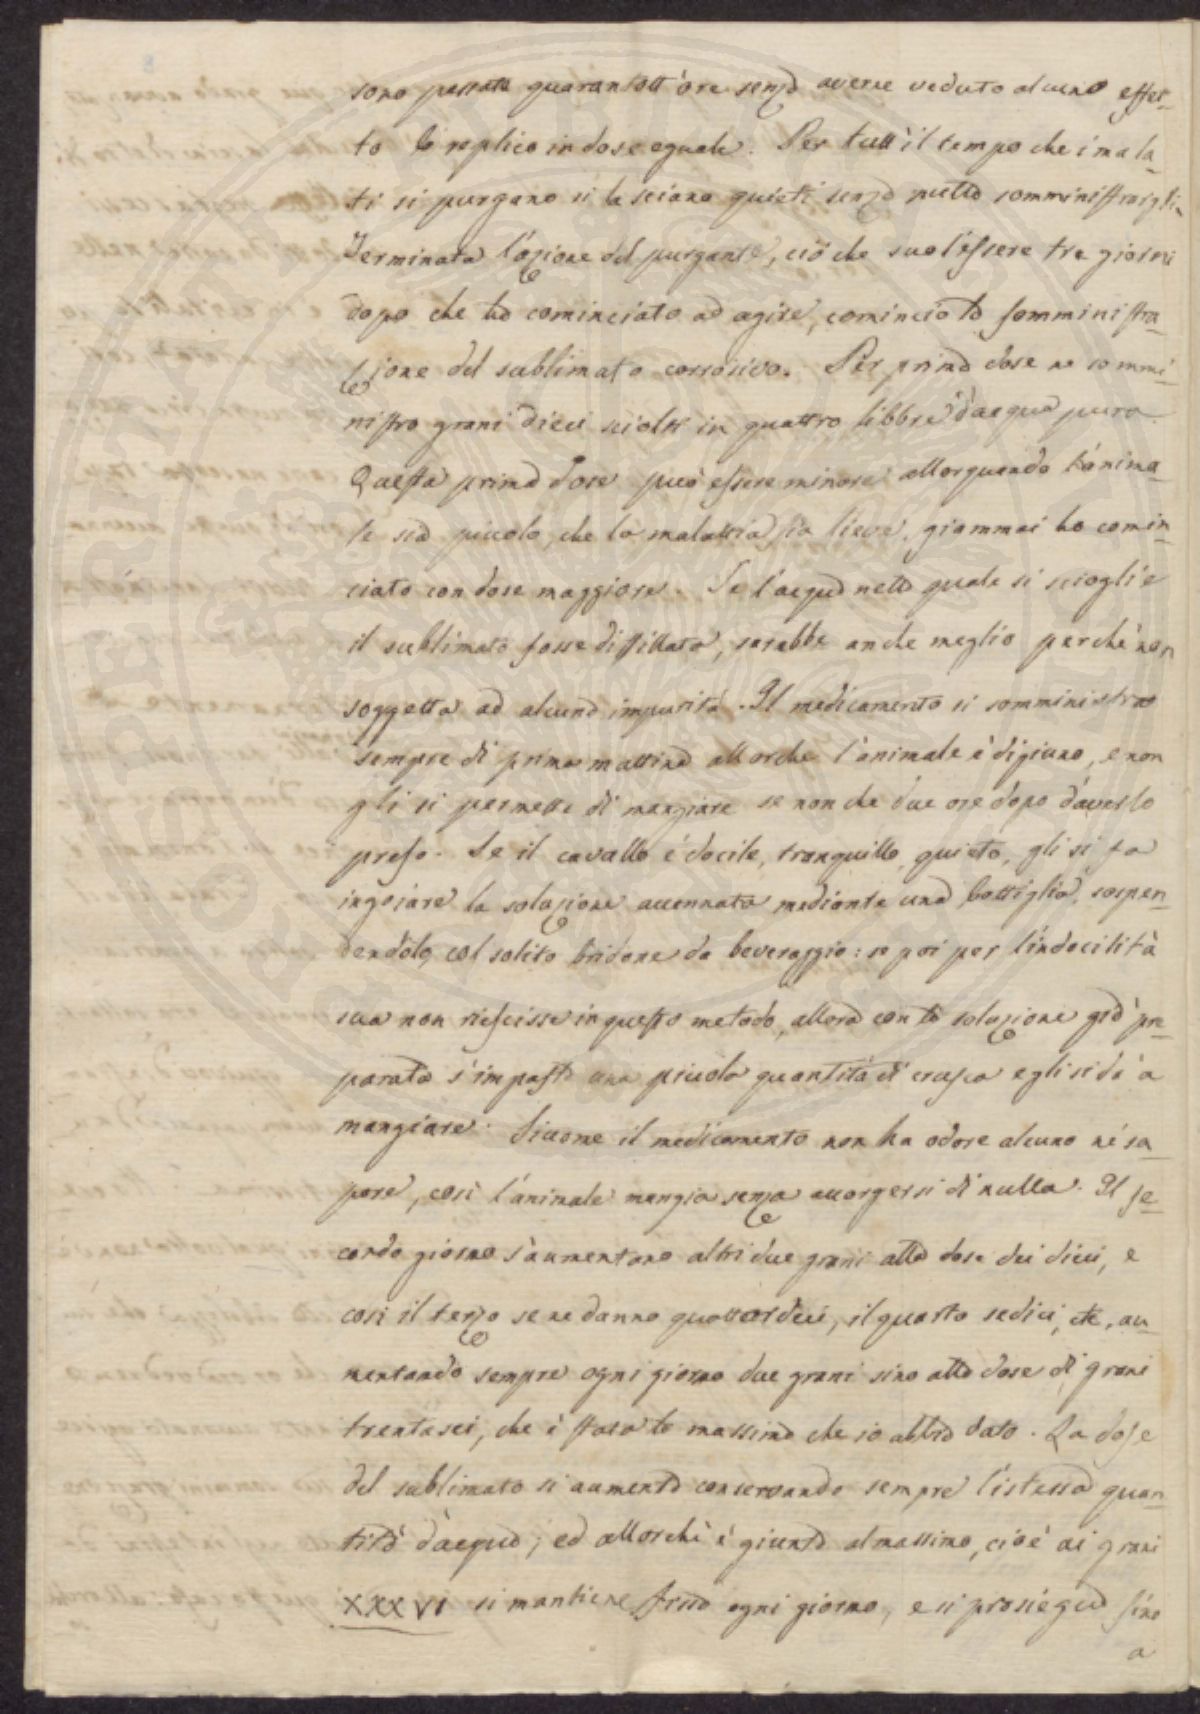 sono passate quarantott'ore senza averne veduto alcuno effet-
to la replico in dose eguale. Per tutt'il tempo che i mala-
ti si purgano si lasciano quieti senza nulla somministrargli.
Terminata l'azione del purgante, ciò che suol'essere tre giorni
dopo che ha cominciato ad agire, comincio la somministra-
zione del sublimato corrosivo. Per prima dose ne sommi-
nistro grani dieci sciolti in quattro libbre d'acqua pura.
Questa prima dose può essere minore allorquando l'anima-
le sia piccolo, che la malattia sia lieve, giammai ho comin-
ciato con dose maggiore. Se l'acqua nella quale si scioglie
il sublimato fosse distillata, sarebbe anche meglio perchè non
soggetta ad alcuna impurità. Il medicamento si somministra
sempre di prima mattina allorche l'animale è digiuno, e non
gli si permette di mangiare se non che due ore dopo d'averlo
preso. Se il cavallo è docile, tranquillo, quieto, gli si fa
ingojare la soluzione accennata mediante una bottiglia, sospen-
dendolo, col solito bridone da beveraggio: se poi per l'indocilità
sua non riescisse in questo metodo, allora con la soluzione già pre-
parata s'impasta una piccola quantità di crusca e gli si dà a
mangiare. Siccome il medicamento non ha odore alcuno nè sa-
pore, così l'animale mangia senza accorgersi di nulla. Il se-
condo giorno s'aumentano altri due grani alla dose dei dieci, e
così il terzo se ne danno quattordeci, il quarto sedici, etc, au-
mentando sempre ogni giorno due grani sino alla dose di grani
trentasei, che è stata la massima che io abbia dato. La dose
del sublimato si aumenta conservando sempre l'istessa quan-
tità d'acqua; ed allorchè è giunta al massimo, cioè ai grani
XXXVI si mantiene fissa ogni giorno, e si prosiegue sino
a